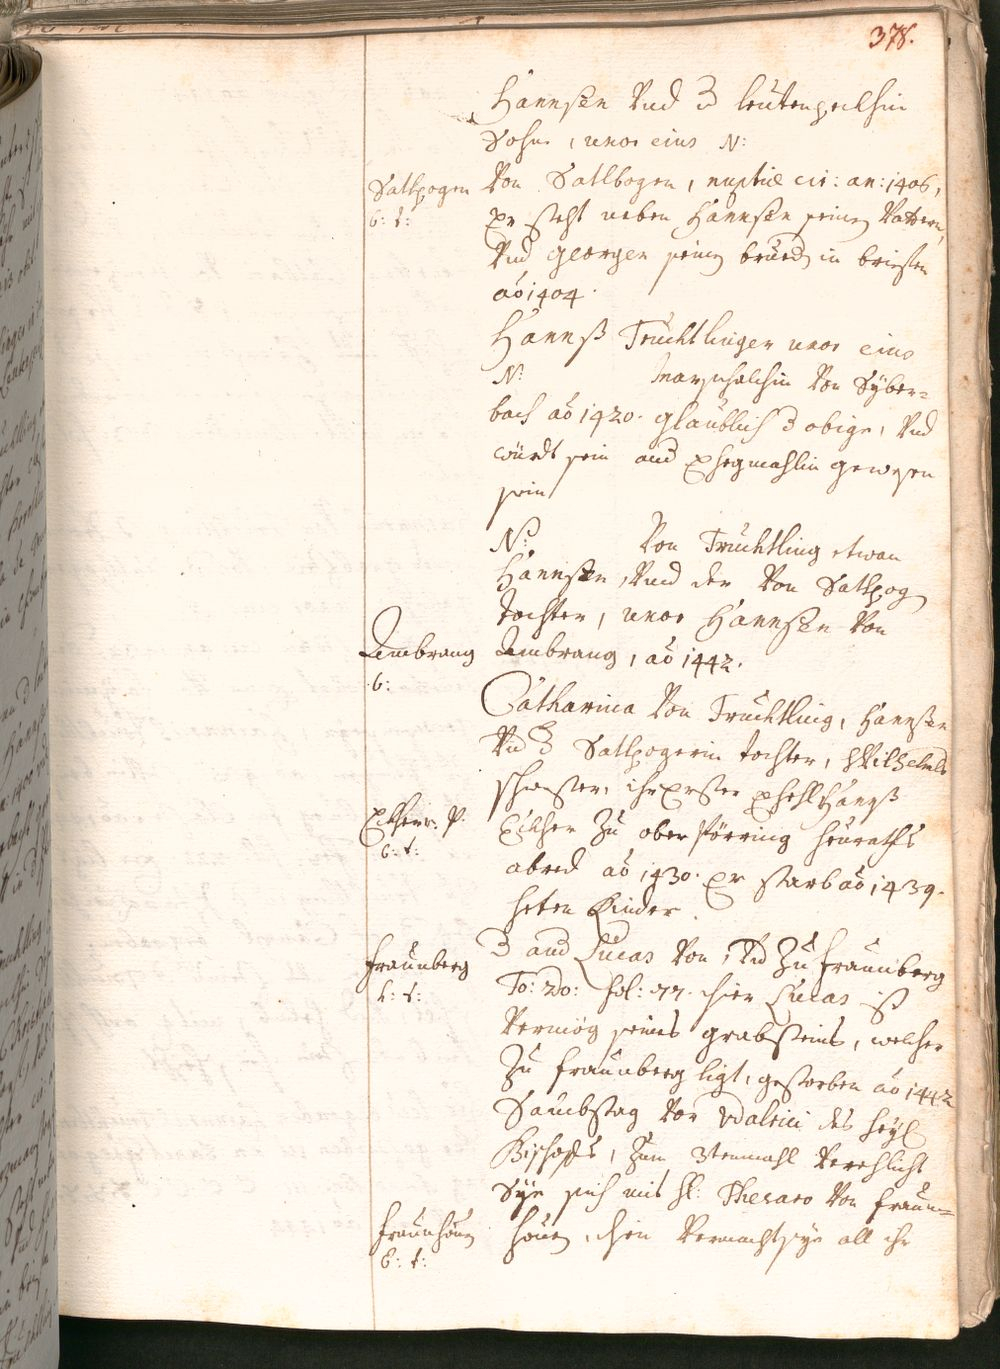 378.
Hannßen Vnd d leutenpeckhin
Sohn, uxor eius N:
Sattlpogen
6: t:
Von Sattlbogen, nuptiæ cir: an: 1406,
Er steht neben Hannßen seinen Vattern,
Vnd Georgen seinen brued in briefen
aõ 1404.
Hannß Truchtlinger uxor eius
N: Marschalchin Von Syber=
bach aõ 1420. glaublich d obige, Vnd
würdt sein and Ehegmahlin gewesen
sein
N: Von Truchtling etwan
Hannßen, Vnd der Von Sattlpog
tochter, uxor Hannßen Von
Zembrang
6:
Zembrang, aõ 1442.
Catharina Von Truchtling, Hannßen
Vnd d Sattlpogerin tochter, Wilhelmb
schwester, ihr Erster Ehehl Hannß
Ekher: P.
6: t:
Ekher Zu oberPörring heuraths
abred aõ 1430. Er starb aõ 1439.
heten Kinder.
Fraunberg
t:
d and Lucas Von, Vnd Zu Fraunberg
To: 20: fol: 77. diser Lucas ist
Vermög seines grabsteins, welcher
Zu Fraunberg ligt, gestorben aõ 1442
Sambstag Vor Vdalrici des heyl
Bischofs, Zum 3tenmahl Verehlicht
Sye sich mit H: Thesaro Von Fraun=
Fraunhouen
6: t:
houen, dem Vermacht sye all ihr